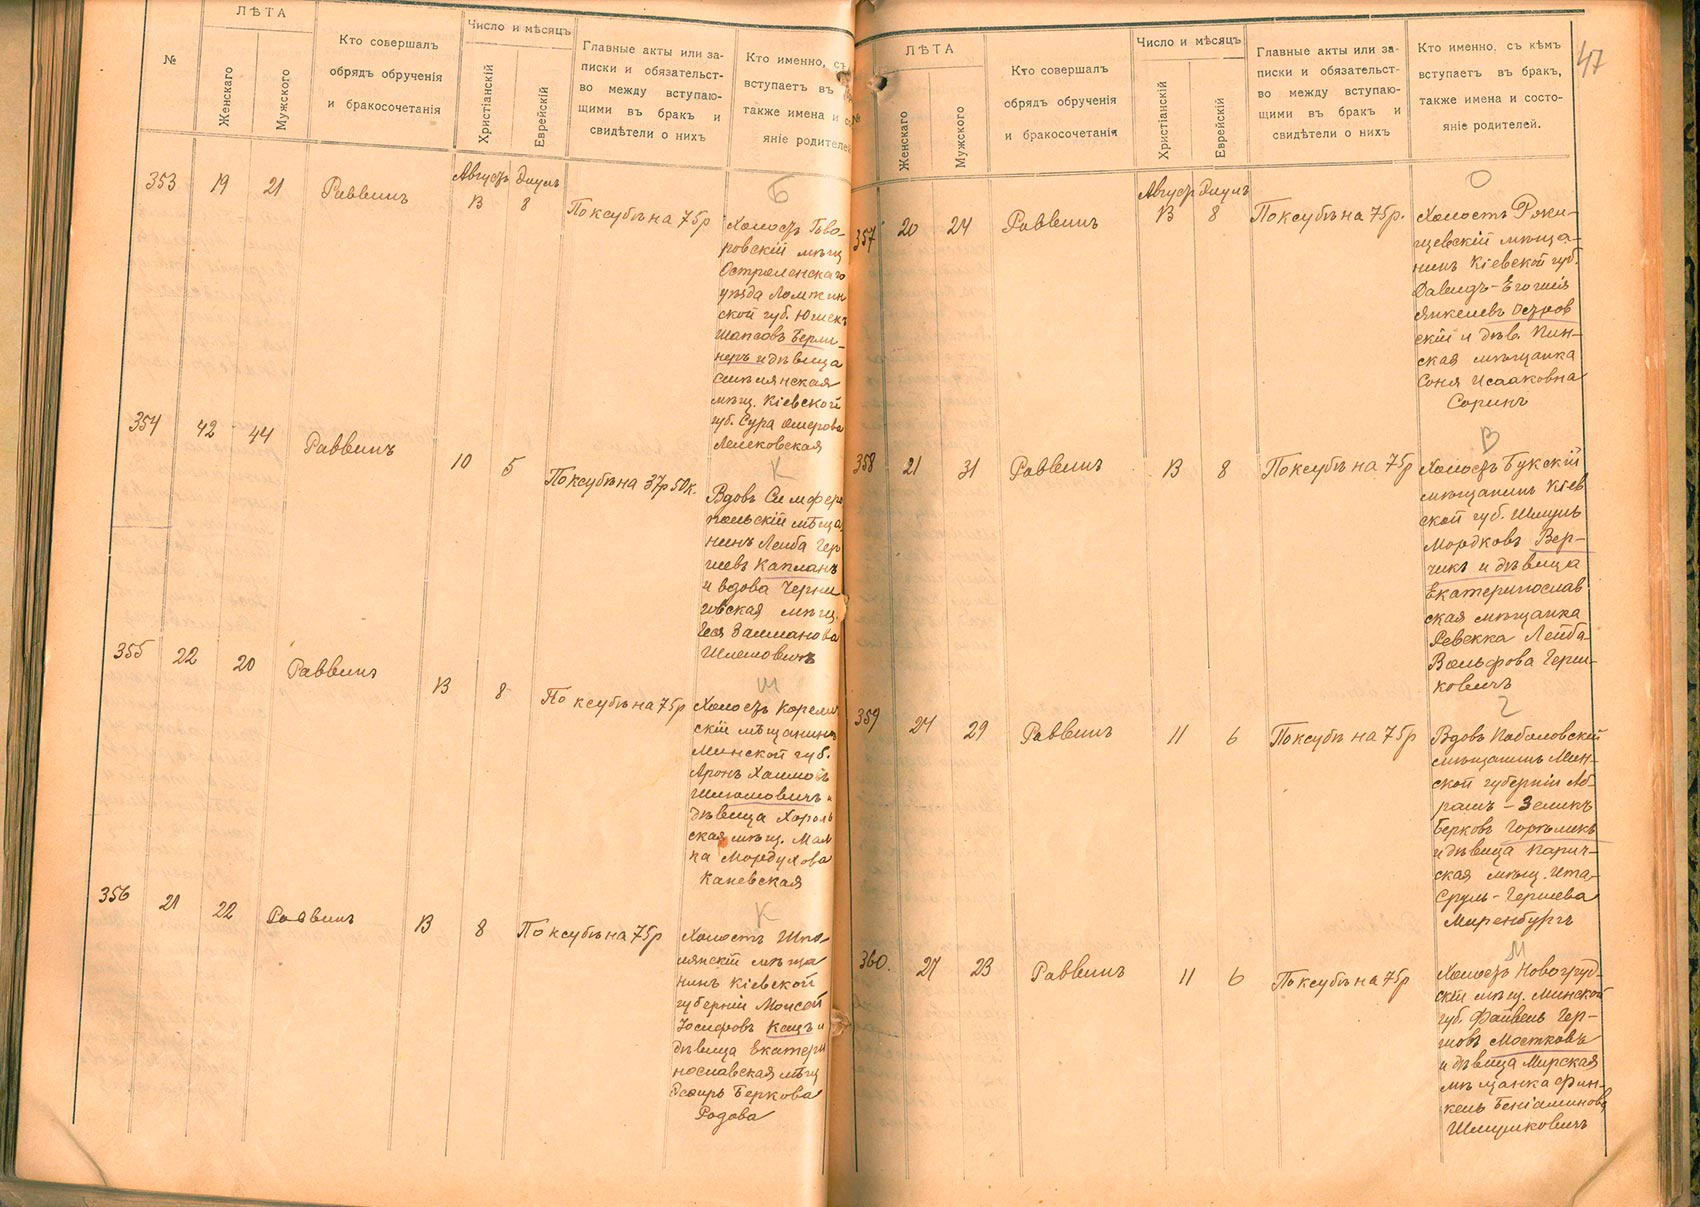 №
ЛѢТА
Женскаго
Мужского
Кто совершалъ
обрядъ обрученія
и бракосочетанія
Число и мѣсяцъ
Христіанскій
Еврейскій
Главные акты или за-
писки и обязательст-
во между вступаю-
щими въ бракъ и
свидѣтели о нихъ
Кто именно, съ
вступаетъ въ
также имена и со
яніе родителей
353 19 21 Раввинъ
Августъ Элулъ
13 8 По ксубѣ на 75 р
Б
Холостъ
ровскій мѣщ
Остроленскаго
уѣзда Ломжин
ской губ.
Шапсовъ Берли-
неръ и дѣвица
Смѣлянская
мѣщ. Кіевской
губ. Сура
354 42 44 Раввинъ 10 5 По ксубѣ на 37 р 50 к.
К
Вдовъ Симферо
польскій мѣща
нинъ Лейба Гер
шевъ Капланъ
и вдова Черни
говская мѣщ.
Геся Залманова
355 22 20 Раввинъ 13 8 По ксубѣ на 75 р
Ш
Холостъ Корелич
скій мѣщанинъ
Минской губ.
Аронъ Хаимовъ
Шмуловичъ и
дѣвица Хороль
ская мѣщ. Мал
ка Мордухова
Каневская
356 21 22 Раввинъ 13 8 По ксубѣ на 75 р
К
Холостъ Шпо-
лянскій мѣща
нинъ Кіевской
губерніи Моисей
Іосифовъ Кацъ и
дѣвица Екатери
нославская мѣщ
Эсфирь Беркова
Родова
47
№
ЛѢТА
Женскаго
Мужского
Кто совершалъ
обрядъ обрученія
и бракосочетанія
Число и мѣсяцъ
Христіанскій
Еврейскій
Главные акты или за-
писки и обязательст-
во между вступаю-
щими въ бракъ и
свидѣтели о нихъ
Кто именно, съ кѣмъ
вступаетъ въ бракъ,
также имена и состо-
яніе родителей.
357 20 24 Раввинъ
Августъ Элулъ
13 8 По ксубѣ на 75 р.
О
Холостъ Ржи-
щевскій мѣща-
нинъ Кіевской губ.
Давидъ-
Янкелевъ Остров
скій и дѣв. Пин-
ская мѣщанка
Соня Исааковна
Соринъ
358 21 31 Раввинъ 13 8 По ксубѣ на 75 р
В
Холостъ Букскій
мѣщанинъ Кіев
ской губ. Шмуль
Мордковъ Вер-
чикъ и дѣвица
Екатеринослав
ская мѣщанка
Ревекка Лейба-
Вольфова Герш-
ковичъ
359 24 29 Раввинъ 11 6 По ксубѣ на 75 р
Г
Вдовъ Паболовскій
мѣщанинъ Мин-
ской губерніи Аб-
рамъ-Зеликъ
Берковъ Горѣликъ
и дѣвица Парич-
ская мѣщ. Ита-
Сруль-Гершева
Миренбургъ
360. 27 23 Раввинъ 11 6 По ксубѣ на 75 р
М
Холостъ Новогруд-
скій мѣщ. Минской
губ. Файвель Гер-
шовъ Мостковъ
и дѣвица Мирская
мѣщанка Фин-
кель Беніаминова
Шмушковичъ